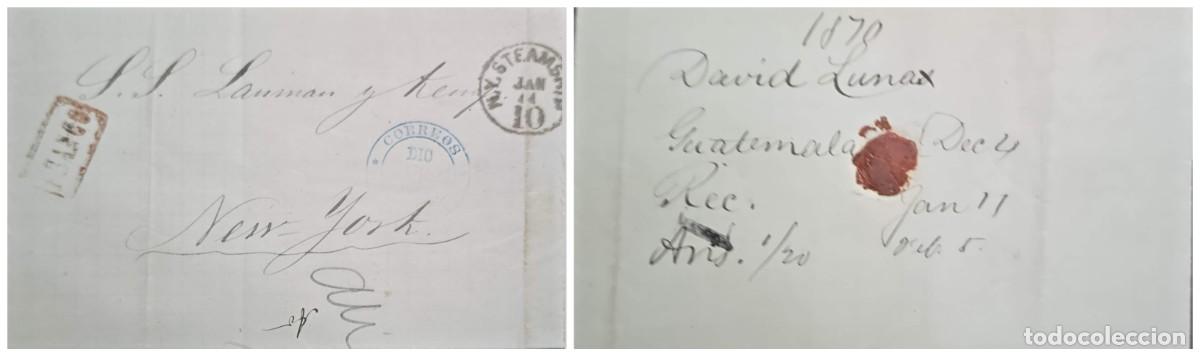 S. S. Lanman y Kemp
N.Y. STEAMSHIP
JAN
11
10
CORREOS
DIC
New York.
1870
David Luna
Guatemala Dec 4
Rec. Jan 11
Ans. 1/20 Feb. 5.
todocoleccion